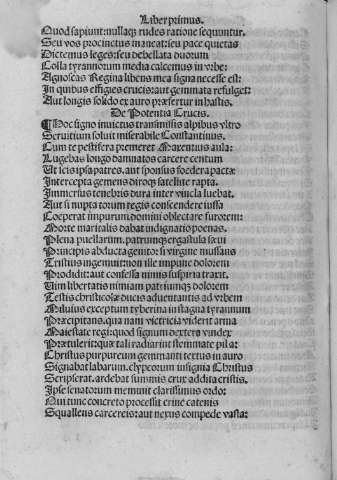 Liber primus.
Quod sapiunt: nullaqz rudes ratione sequuntur.
Seu vos procinctus maneat: seu pace quietas
Dictemus leges: seu debellata duorum
Colla tyrannorum media calcemus in vrbe:
Agnoscas Regina libens mea signa necesse est:
In quibus effigies crucis: aut gemmata refulget:
Aut longis solido ex auro præfertur in hastis.
De Potentia Crucis.
¶Hoc signo inuictus transmissis alpibus vltro
Seruitium soluit miserabile Constantinus.
Cum te pestifera premeret Maxentius aula:
Lugebas longo damnatos carcere centum
Ut scis ipsa patres. aut sponsus foedera pacta:
Intercepta gemens diroqz satellite rapta.
Immersus tenebris dura inter vincla luebat.
Aut si nupta torum regis conscendere iussa
Coeperat impurum domini oblectare furorem:
Morte maritalis dabat indignatio poenas.
Plena puellarum. patrumqz ergastula sæui
Principis abducta genitor si virgine mussans
Tristius ingemuit: non ille impune dolorem
Prodidit: aut confessa nimis suspiria traxit.
Vim libertatis nimiam patriumqz dolorem
Testis christicolæ ducis aduentantis ad vrbem
Miluius exceptum tyberina in stagna tyrannum
Præcipitans. qua nam victricia viderit arma
Maiestate regi: quod signum dextera vindex
Prætulerit: qux tali radiarint stemmate pilar:
Christus purpureum gemmanti textus in auro
Signabat labarum. clypeorum insignia Christus
Scripserat. ardebat summis crux addita cristis.
Ipse senatorum meminit clarissimus ordo:
Qui tunc concreto processit crine catenis
Squallens carcereis: aut nexus compede vasta: